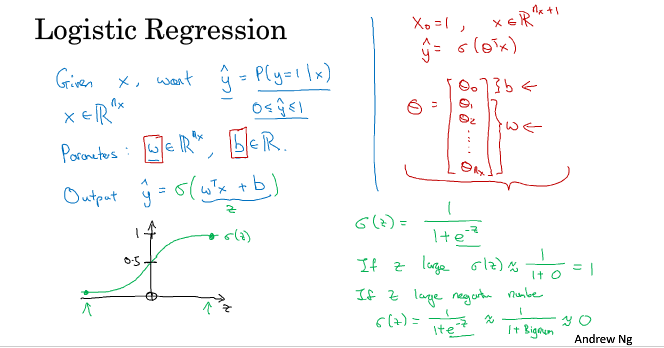 Logistic Regression
Given x, want ŷ = P(y=1|x)
x ∈ ℝⁿˣ 0 ≤ ŷ ≤ 1
Parameters: w ∈ ℝⁿˣ, b ∈ ℝ.
Output ŷ = σ(wᵀx + b)
z
1
0.5
σ(z)
z
X₀ = 1, x ∈ ℝⁿˣ⁺¹
ŷ = σ(θᵀx)
θ = [θ₀ θ₁ θ₂ ⋮ θₙₓ]
} b ←
} w ←
σ(z) = 1 / (1 + e⁻ᶻ)
If z large σ(z) ≈ 1 / (1 + 0) = 1
If z large negative number
σ(z) = 1 / (1 + e⁻ᶻ) ≈ 1 / (1 + Bignum) ≈ 0
Andrew Ng